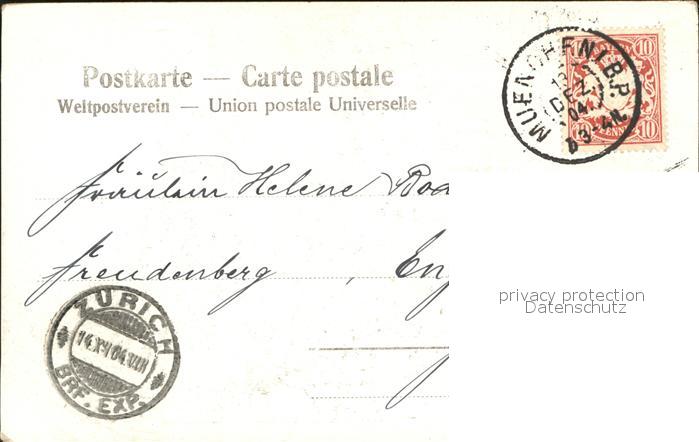 Postkarte — Carte postale
Weltpostverein — Union postale Universelle
10 10
10 PFENNIG 10
MUENCHEN I B.P.
13
DEZ
04
3-4N.
Fräulein Helene Boa
Freudenberg , En
privacy protection
Datenschutz
ZÜRICH
14.XII.04.VIII
BRF. EXP.